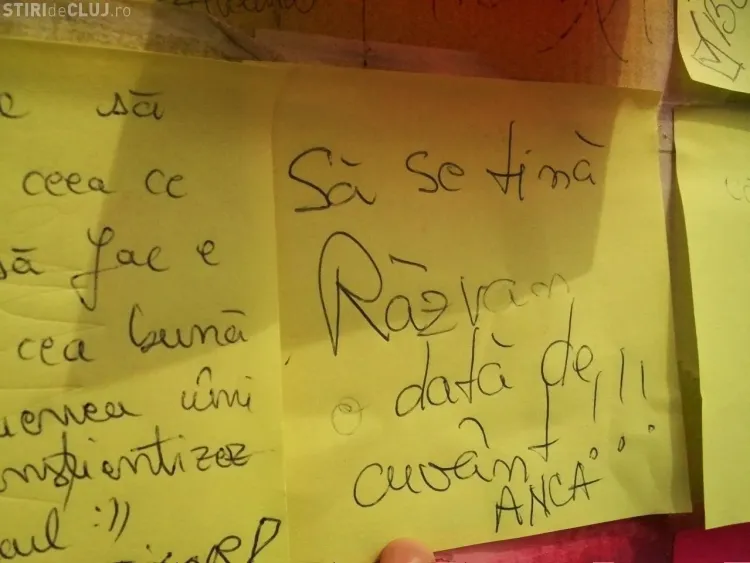 ȘTIRIdeCLUJ.ro
să
ceea ce
să fac e
cea bună
îmi
:))
Să se țină
Răzvan
o dată de
cuvânt!!!
ANCA